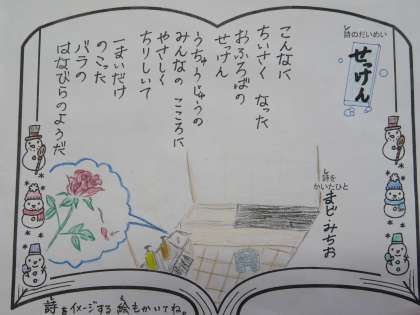 詩のだいめい
せっけん
詩を
かいたひと
まど・みちお
こんなに
ちいさく なった
おふろばの
せっけん
うちゅうじゅうの
みんなの こころに
やさしく
ちりしいて
一まいだけ
のこった
バラの
はなびらのようだ
詩をイメージする絵もかいてね。